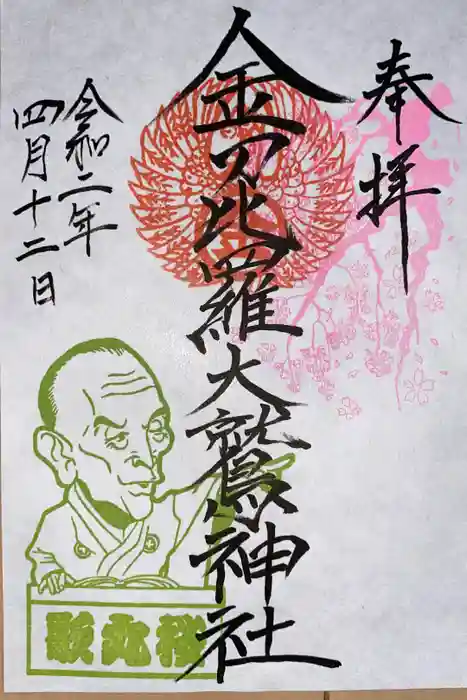 奉拝
金刀比羅大鷲神社
令和二年
四月十二日
歌丸桜